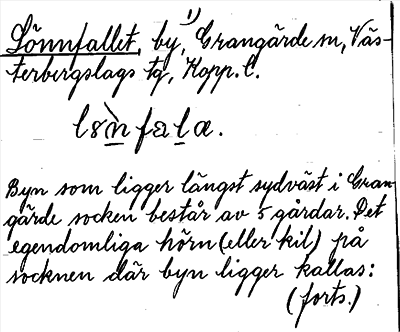 1)
Lönnfallet, by, Grangärde sn, Väs-
terbergslags tg, Kopp. l.
lön fala.
Byn som ligger längst sydväst i Gran-
gärde socken består av 5 gårdar. Det
egendomliga hörn (eller kil) på
socknen där byn ligger kallas:
(forts.)